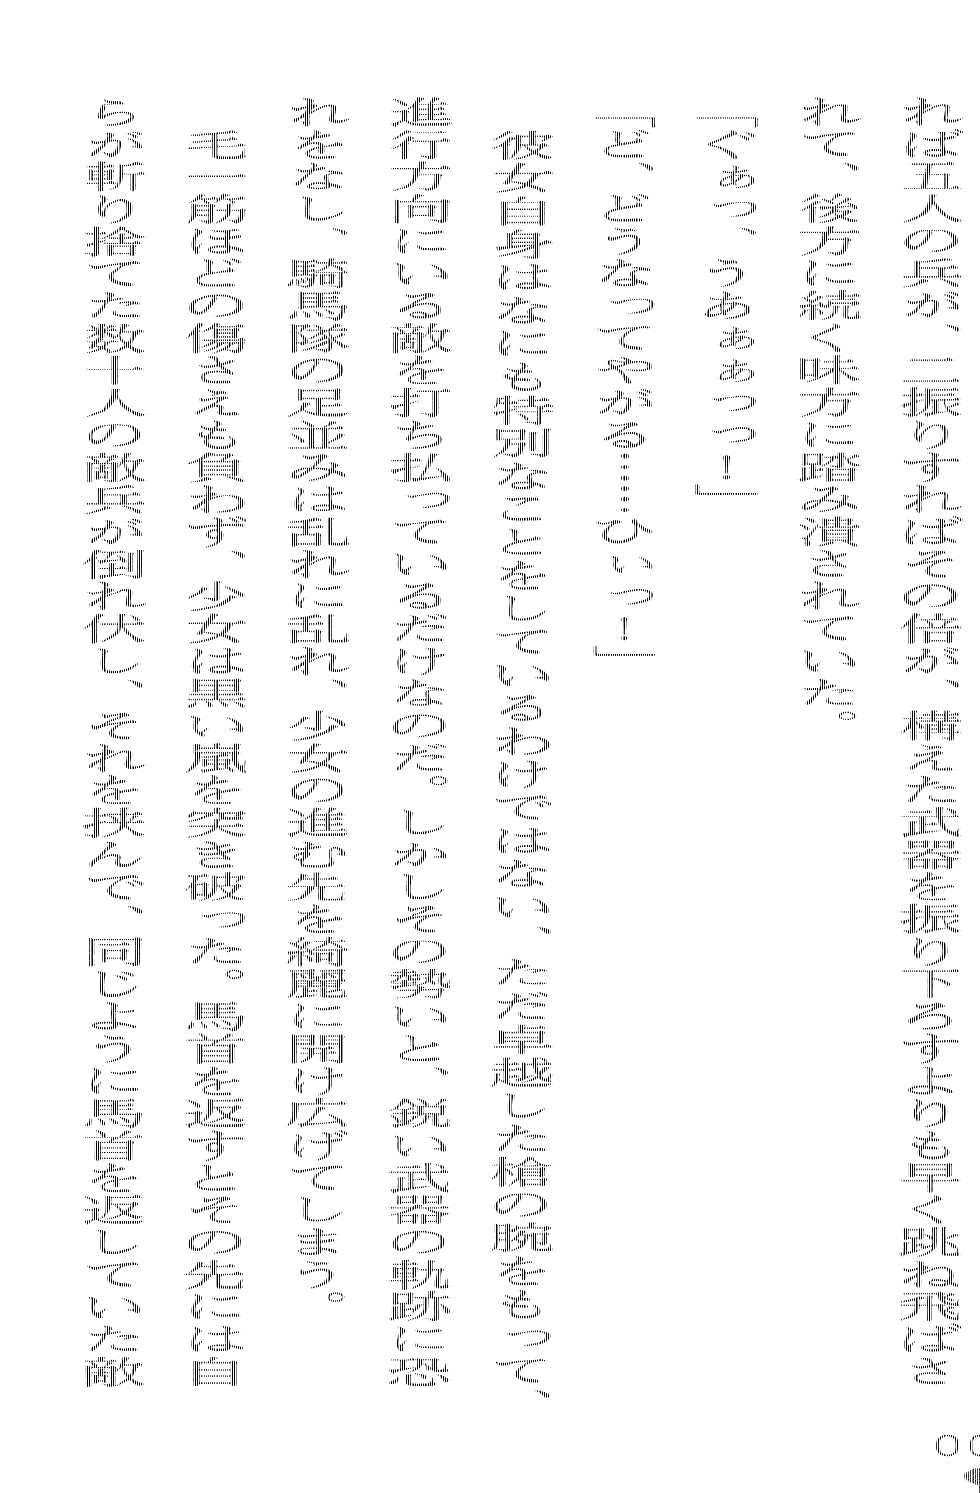 れば五人の兵が、二振りすればその倍が、構えた武器を振り下ろすよりも早く跳ね飛ばさ
れて、後方に続く味方に踏み潰されていた。
「ぐぁっ、うあぁぁっっ！」
「ど、どうなってやがる……ひいっ！」
彼女自身はなにも特別なことをしているわけではない、ただ卓越した槍の腕をもって、
進行方向にいる敵を打ち払っているだけなのだ。しかしその勢いと、鋭い武器の軌跡に恐
れをなし、騎馬隊の足並みは乱れに乱れ、少女の進む先を綺麗に開け広げてしまう。
毛一筋ほどの傷さえも負わず、少女は黒い嵐を突き破った。馬首を返すとその先には自
らが斬り捨てた数十人の敵兵が倒れ伏し、それを挟んで、同じように馬首を返していた敵